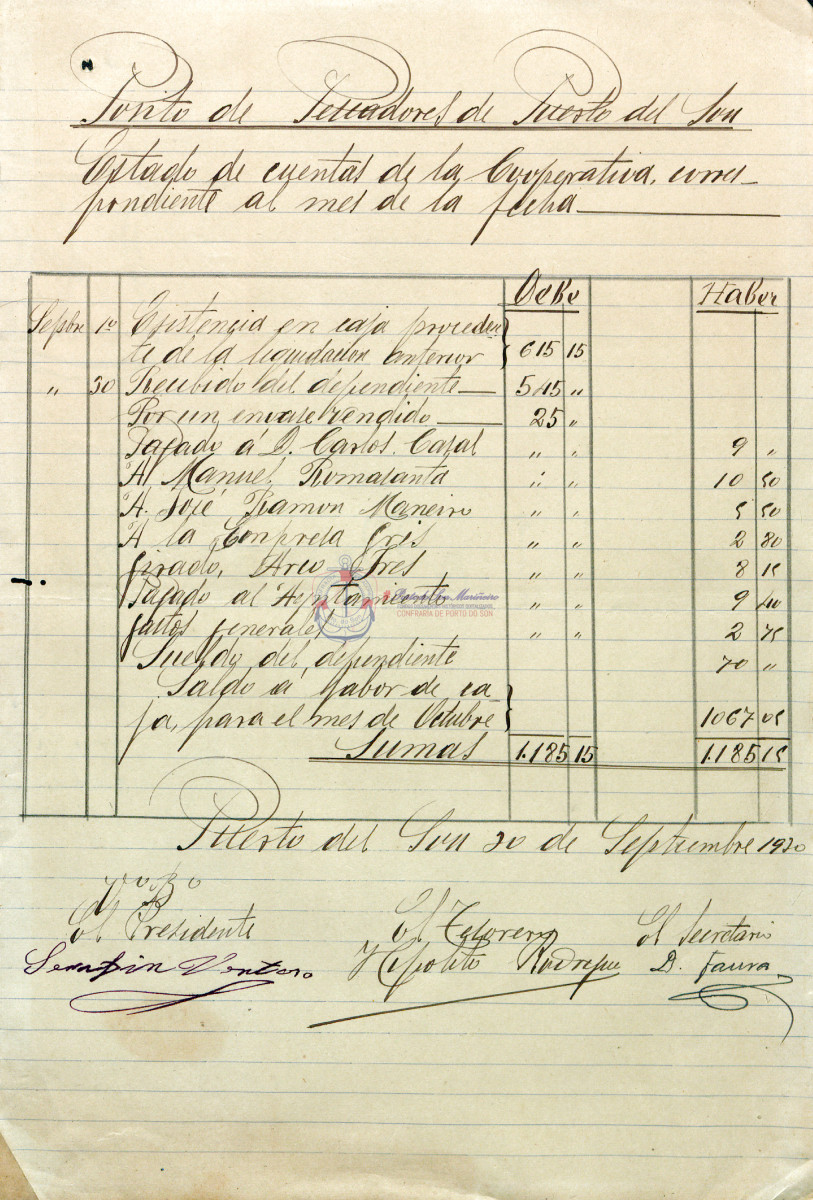 Posito de Pescadores de Puerto del Son
Estado de cuentas de la Cooperativa, corres-
pondiente al mes de la fecha
Debe Haber
Sepbre 1º Existencia en caja proceden
te de la liquidación anterior } 615 15
" 30 Recibido del dependiente 545 "
Por un envase vendido 25 "
Pagado á D. Carlos Casal " " 9 "
A Manuel Romasanta " " 10 50
A José Ramon Maneiro " " 5 50
A la Empresa Gris " " 2 80
girado, Arco Tres " " 8 15
Pagado al Ayuntamiento " " 9 40
gastos generales " " 2 75
Sueldo del dependiente 70 "
Saldo á fabor de ca
ja, para el mes de Octubre } 1067 05
Sumas 1.185 15 1.185 15
Puerto del Son 30 de Septiembre 1920
Vº Bº
El Presidente El Tesorero El Secretario
Serafin Ventoso Hipolito Rodrigue D. Faura
CONFRARIA DE PORTO DO SON